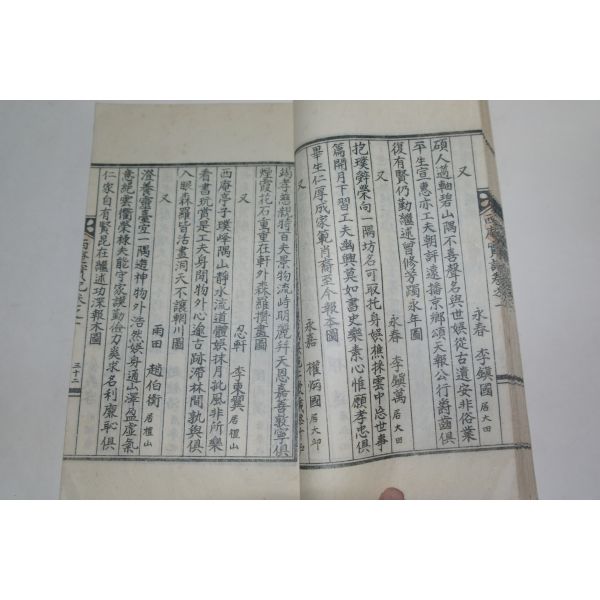 又
永春 李鎭國 居大田
碩人薖軸碧山隅不喜聲名與世娛從古遺安非俗業
平生宣惠亦工夫朝評遠播京鄉頌天報公行爵齒俱
復有賢仍勤繼述曾修芳躅永年圖
又
永春 李鎭萬 居大田
抱璞辭榮向一隅坊名可取托身娛樵採雲中忘世事
篇開月下習工夫幽興莫如書史樂素心惟願孝忠俱
畢生仁厚成家範肖裔至今報本圖
又
永嘉 權炳國 居大邱
竭孝慈親特百夫景物流峙明麗幷天恩嘉善敦寧俱
煙霞花石重重在軒外森羅攢畫圖
又
忍軒 李東翼 居檀山
西庵亭子璞峰隅山靜水流道體娛抹月批風非所樂
看書玩賞是工夫身閒物外心遠古跡滯林間孰與俱
入眼森羅皆活畫洞天不讓輞川圖
又
雨田 趙伯衡 居檀山
澄養靈臺空一隅遊神物外浩然娛身適山澤盈虛氣
意絶雲衢榮棟夫能守家謨勤儉力奚求名利廉恥俱
仁家自有賢昆在繼述功深報本圖
三十二